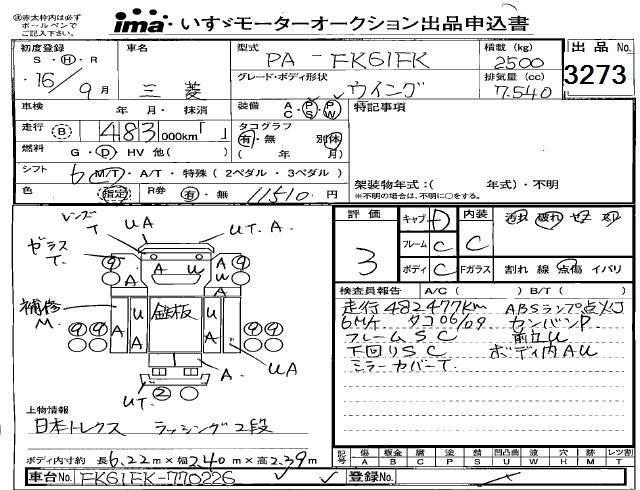 赤太枠内は必ず
ボールペンで
ご記入下さい。
ima いすゞモーターオークション出品申込書
初度登録
S・H・R
16 / 9月
車名
三菱
型式
PA-FK61FK
グレード・ボディ形状
ウイング
積載(kg)
2500
排気量(cc)
7.540
出品No.
3273
車検 年・月・抹消
装備 AC PS PW
走行 B 483 000km「 」
タコグラフ
有・無 別体
( 年 月)
燃料 G・D・HV 他( )
シフト 6 M/T・A/T・特殊(2ペダル・3ペダル)
色 指定 R券 有・無 11510円
特記事項
架装物年式:( 年式)・不明
※不明の場合は、不明に○をする。
レンズT UA
ガラスT. UT.A
補修M.
鉄板
A U A W A U A
9 9 9 9
A UA
UT 2
上物情報
日本トレクス ラッシング2段
ボディ内寸約 長6.22m×幅2.40m×高2.39m
車台No. FK61FK-770226
登録No.
評価
3
キャブ D
フレーム C
ボディ C
内装 C
汚れ 破れ
Fガラス 割れ 線 点傷 イバリ
検査員報告 A/C( ) B/T( )
走行482477km ABSランプ点灯
6M/T タコ00/09 センバンP
フレームSC 前立U
下回りSC ボディ内AU
ミラーカバーT
記号 傷A 板金B 腐C 塗P 錆S 凹U 凸凹曲U 波W 穴H 跡M レツ割T